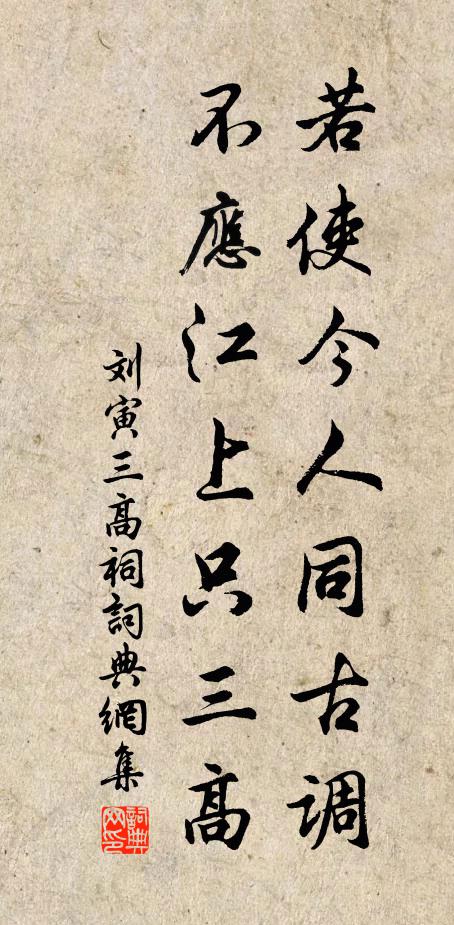 若使今人同古调
不應江上只三高
刘寅三高祠詞典網集
詞典網印